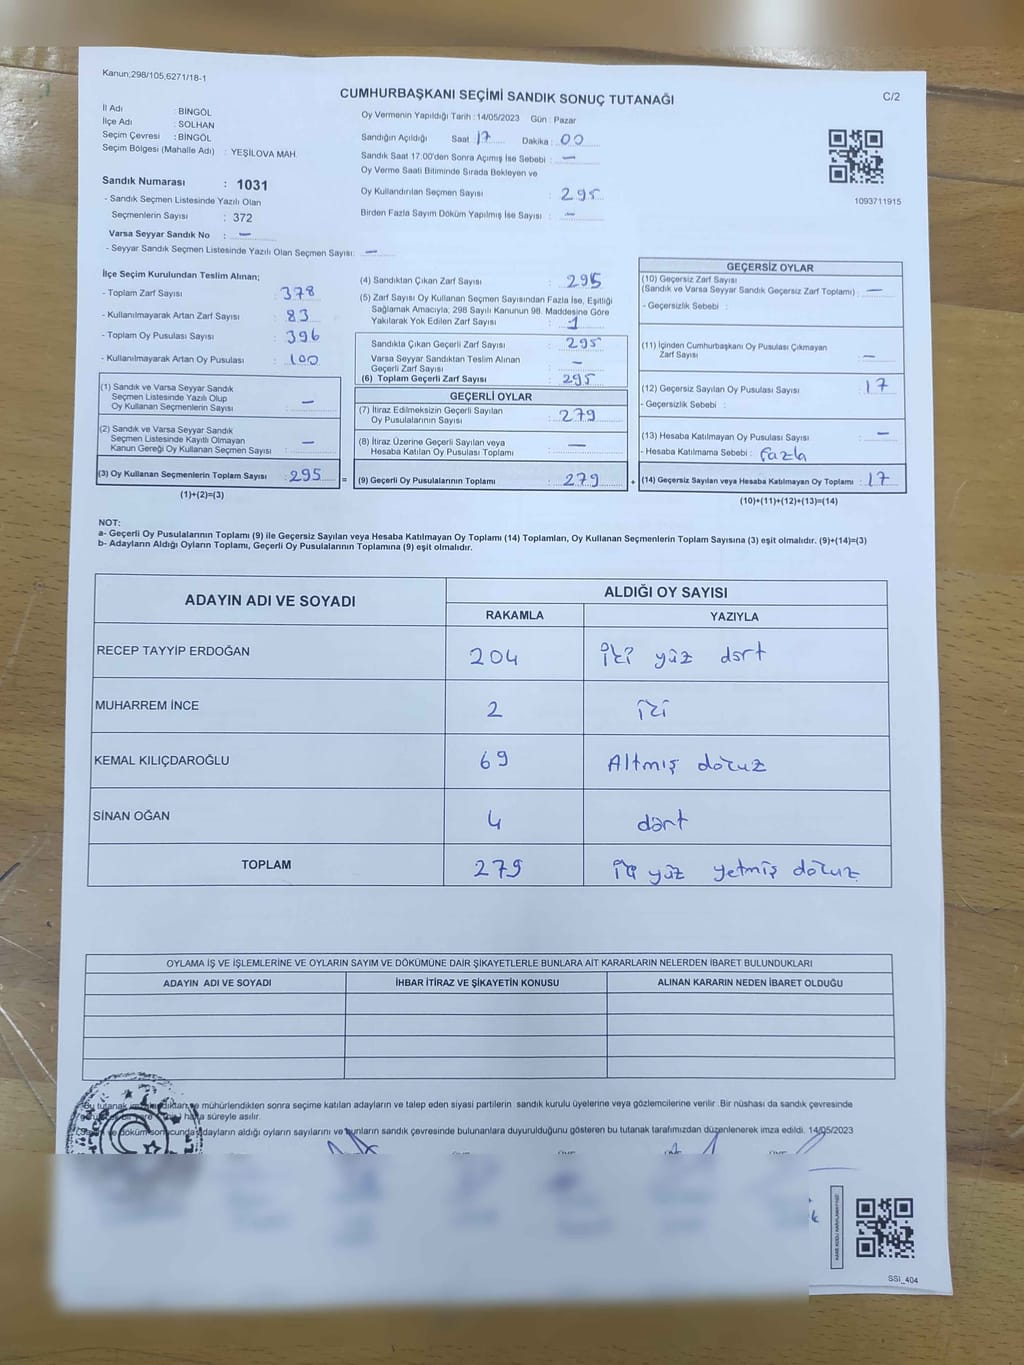 Kanun;298/105,6271/18-1
CUMHURBAŞKANI SEÇİMİ SANDIK SONUÇ TUTANAĞI
C/2
İl Adı : BİNGÖL
İlçe Adı : SOLHAN
Seçim Çevresi : BİNGÖL
Seçim Bölgesi (Mahalle Adı) : YEŞİLOVA MAH.
Sandık Numarası : 1031
- Sandık Seçmen Listesinde Yazılı Olan
Seçmenlerin Sayısı : 372
Varsa Seyyar Sandık No : —
- Seyyar Sandık Seçmen Listesinde Yazılı Olan Seçmen Sayısı: —
Oy Vermenin Yapıldığı Tarih : 14/05/2023 Gün : Pazar
Sandığın Açıldığı Saat : 17 Dakika : 00
Sandık Saat 17:00'den Sonra Açımış İse Sebebi : —
Oy Verme Saati Bitiminde Sırada Bekleyen ve
Oy Kullandırılan Seçmen Sayısı : 295
Birden Fazla Sayım Döküm Yapılmış İse Sayısı : —
1093711915
İlçe Seçim Kurulundan Teslim Alınan;
- Toplam Zarf Sayısı : 378
- Kullanılmayarak Artan Zarf Sayısı : 83
- Toplam Oy Pusulası Sayısı : 396
- Kullanılmayarak Artan Oy Pusulası : 100
(1) Sandık ve Varsa Seyyar Sandık
Seçmen Listesinde Yazılı Olup
Oy Kullanan Seçmenlerin Sayısı : —
(2) Sandık ve Varsa Seyyar Sandık
Seçmen Listesinde Kayıtlı Olmayan
Kanun Gereği Oy Kullanan Seçmen Sayısı : —
(3) Oy Kullanan Seçmenlerin Toplam Sayısı : 295 =
(1)+(2)=(3)
(4) Sandıktan Çıkan Zarf Sayısı : 295
(5) Zarf Sayısı Oy Kullanan Seçmen Sayısından Fazla İse, Eşitliği
Sağlamak Amacıyla, 298 Sayılı Kanunun 98. Maddesine Göre
Yakılarak Yok Edilen Zarf Sayısı : 1
Sandıkta Çıkan Geçerli Zarf Sayısı : 295
Varsa Seyyar Sandıktan Teslim Alınan
Geçerli Zarf Sayısı : —
(6) Toplam Geçerli Zarf Sayısı : 295
GEÇERLİ OYLAR
(7) İtiraz Edilmeksizin Geçerli Sayılan
Oy Pusulalarının Sayısı : 279
(8) İtiraz Üzerine Geçerli Sayılan veya
Hesaba Katılan Oy Pusulası Toplamı : —
(9) Geçerli Oy Pusulalarının Toplamı : 279 +
GEÇERSİZ OYLAR
(10) Geçersiz Zarf Sayısı
(Sandık ve Varsa Seyyar Sandık Geçersiz Zarf Toplamı) : —
- Geçersizlik Sebebi :
(11) İçinden Cumhurbaşkanı Oy Pusulası Çıkmayan
Zarf Sayısı : —
(12) Geçersiz Sayılan Oy Pusulası Sayısı : 17
- Geçersizlik Sebebi :
(13) Hesaba Katılmayan Oy Pusulası Sayısı : —
- Hesaba Katılmama Sebebi : fazla
(14) Geçersiz Sayılan veya Hesaba Katılmayan Oy Toplamı : 17
(10)+(11)+(12)+(13)=(14)
NOT:
a- Geçerli Oy Pusulalarının Toplamı (9) ile Geçersiz Sayılan veya Hesaba Katılmayan Oy Toplamı (14) Toplamları, Oy Kullanan Seçmenlerin Toplam Sayısına (3) eşit olmalıdır. (9)+(14)=(3)
b- Adayların Aldığı Oyların Toplamı, Geçerli Oy Pusulalarının Toplamına (9) eşit olmalıdır.
ADAYIN ADI VE SOYADI
ALDIĞI OY SAYISI
RAKAMLA YAZIYLA
RECEP TAYYİP ERDOĞAN 204 iki yüz dört
MUHARREM İNCE 2 iki
KEMAL KILIÇDAROĞLU 69 Altmış dokuz
SİNAN OĞAN 4 dört
TOPLAM 279 iki yüz yetmiş dokuz
OYLAMA İŞ VE İŞLEMLERİNE VE OYLARIN SAYIM VE DÖKÜMÜNE DAİR ŞİKAYETLERLE BUNLARA AİT KARARLARIN NELERDEN İBARET BULUNDUKLARI
ADAYIN ADI VE SOYADI İHBAR İTİRAZ VE ŞİKAYETİN KONUSU ALINAN KARARIN NEDEN İBARET OLDUĞU
Bu tutanak mühürlendikten sonra seçime katılan adayların ve talep eden siyasi partilerin sandık kurulu üyelerine veya gözlemcilerine verilir. Bir nüshası da sandık çevresinde
hafta süreyle asılır.
döküm sonucunda adayların aldığı oyların sayılarını ve bunların sandık çevresinde bulunanlara duyurulduğunu gösteren bu tutanak tarafımızdan düzenlenerek imza edildi. 14/05/2023
SSI_404